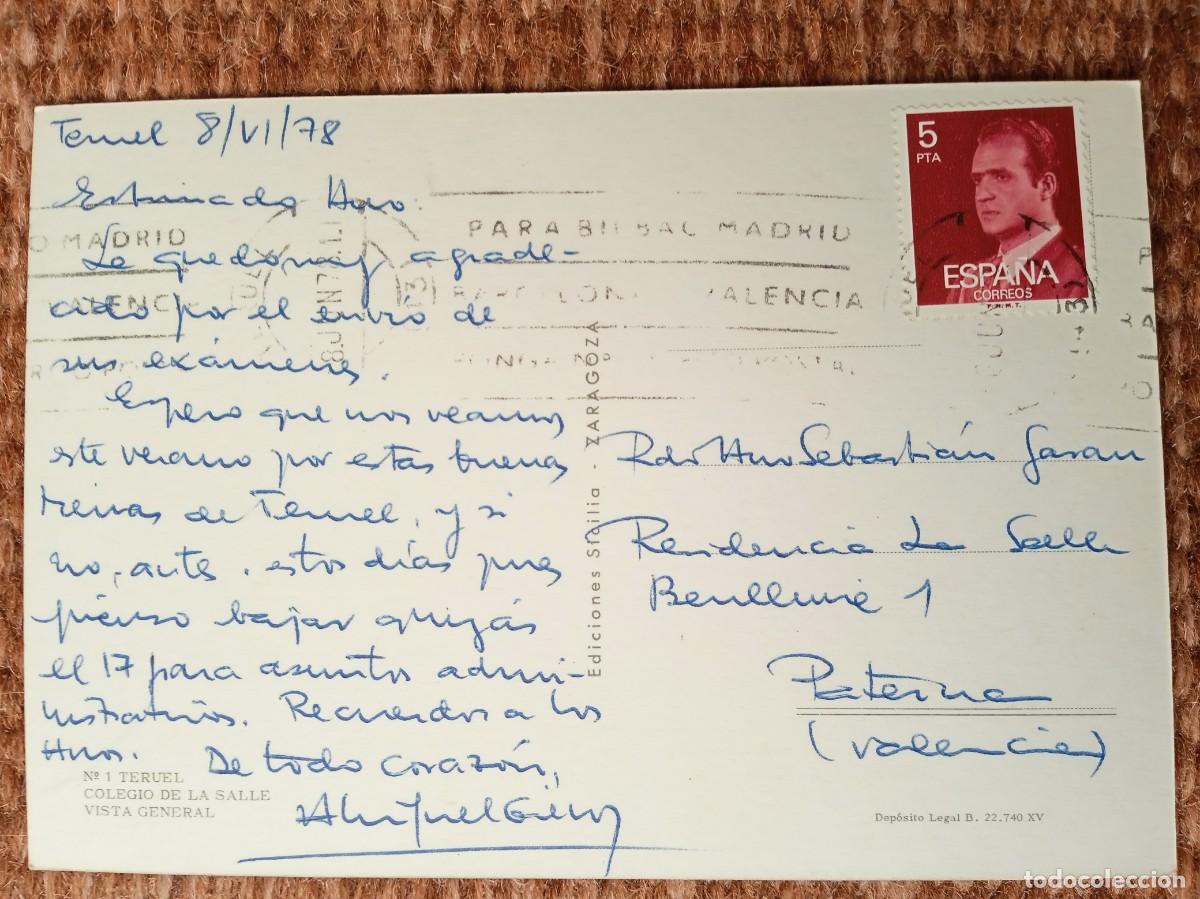 Teruel 8/VI/78
Estimado Hno:
Le quedo muy agrade-
cido por el envío de
sus exámenes.
Espero que nos veamos
este verano por estas buenas
tierras de Teruel, y si
no, antes, estos días pues
pienso bajar quizás
el 17 para asuntos admi-
nistrativos. Recuerdos a los
Hnos. De todo corazón,
Nº 1 TERUEL
COLEGIO DE LA SALLE
VISTA GENERAL
Ediciones Sicilia - ZARAGOZA
O MADRID
VALENCIA
8.JUN78
PARA BILBAO MADRID
BARCELONA VALENCIA
5
PTA
ESPAÑA
CORREOS
F.N.M.T.
Rdo Hno Sebastián Garau
Residencia La Salle
Benlliure 1
Paterna
(Valencia)
Depósito Legal B. 22.740 XV
todocoleccion